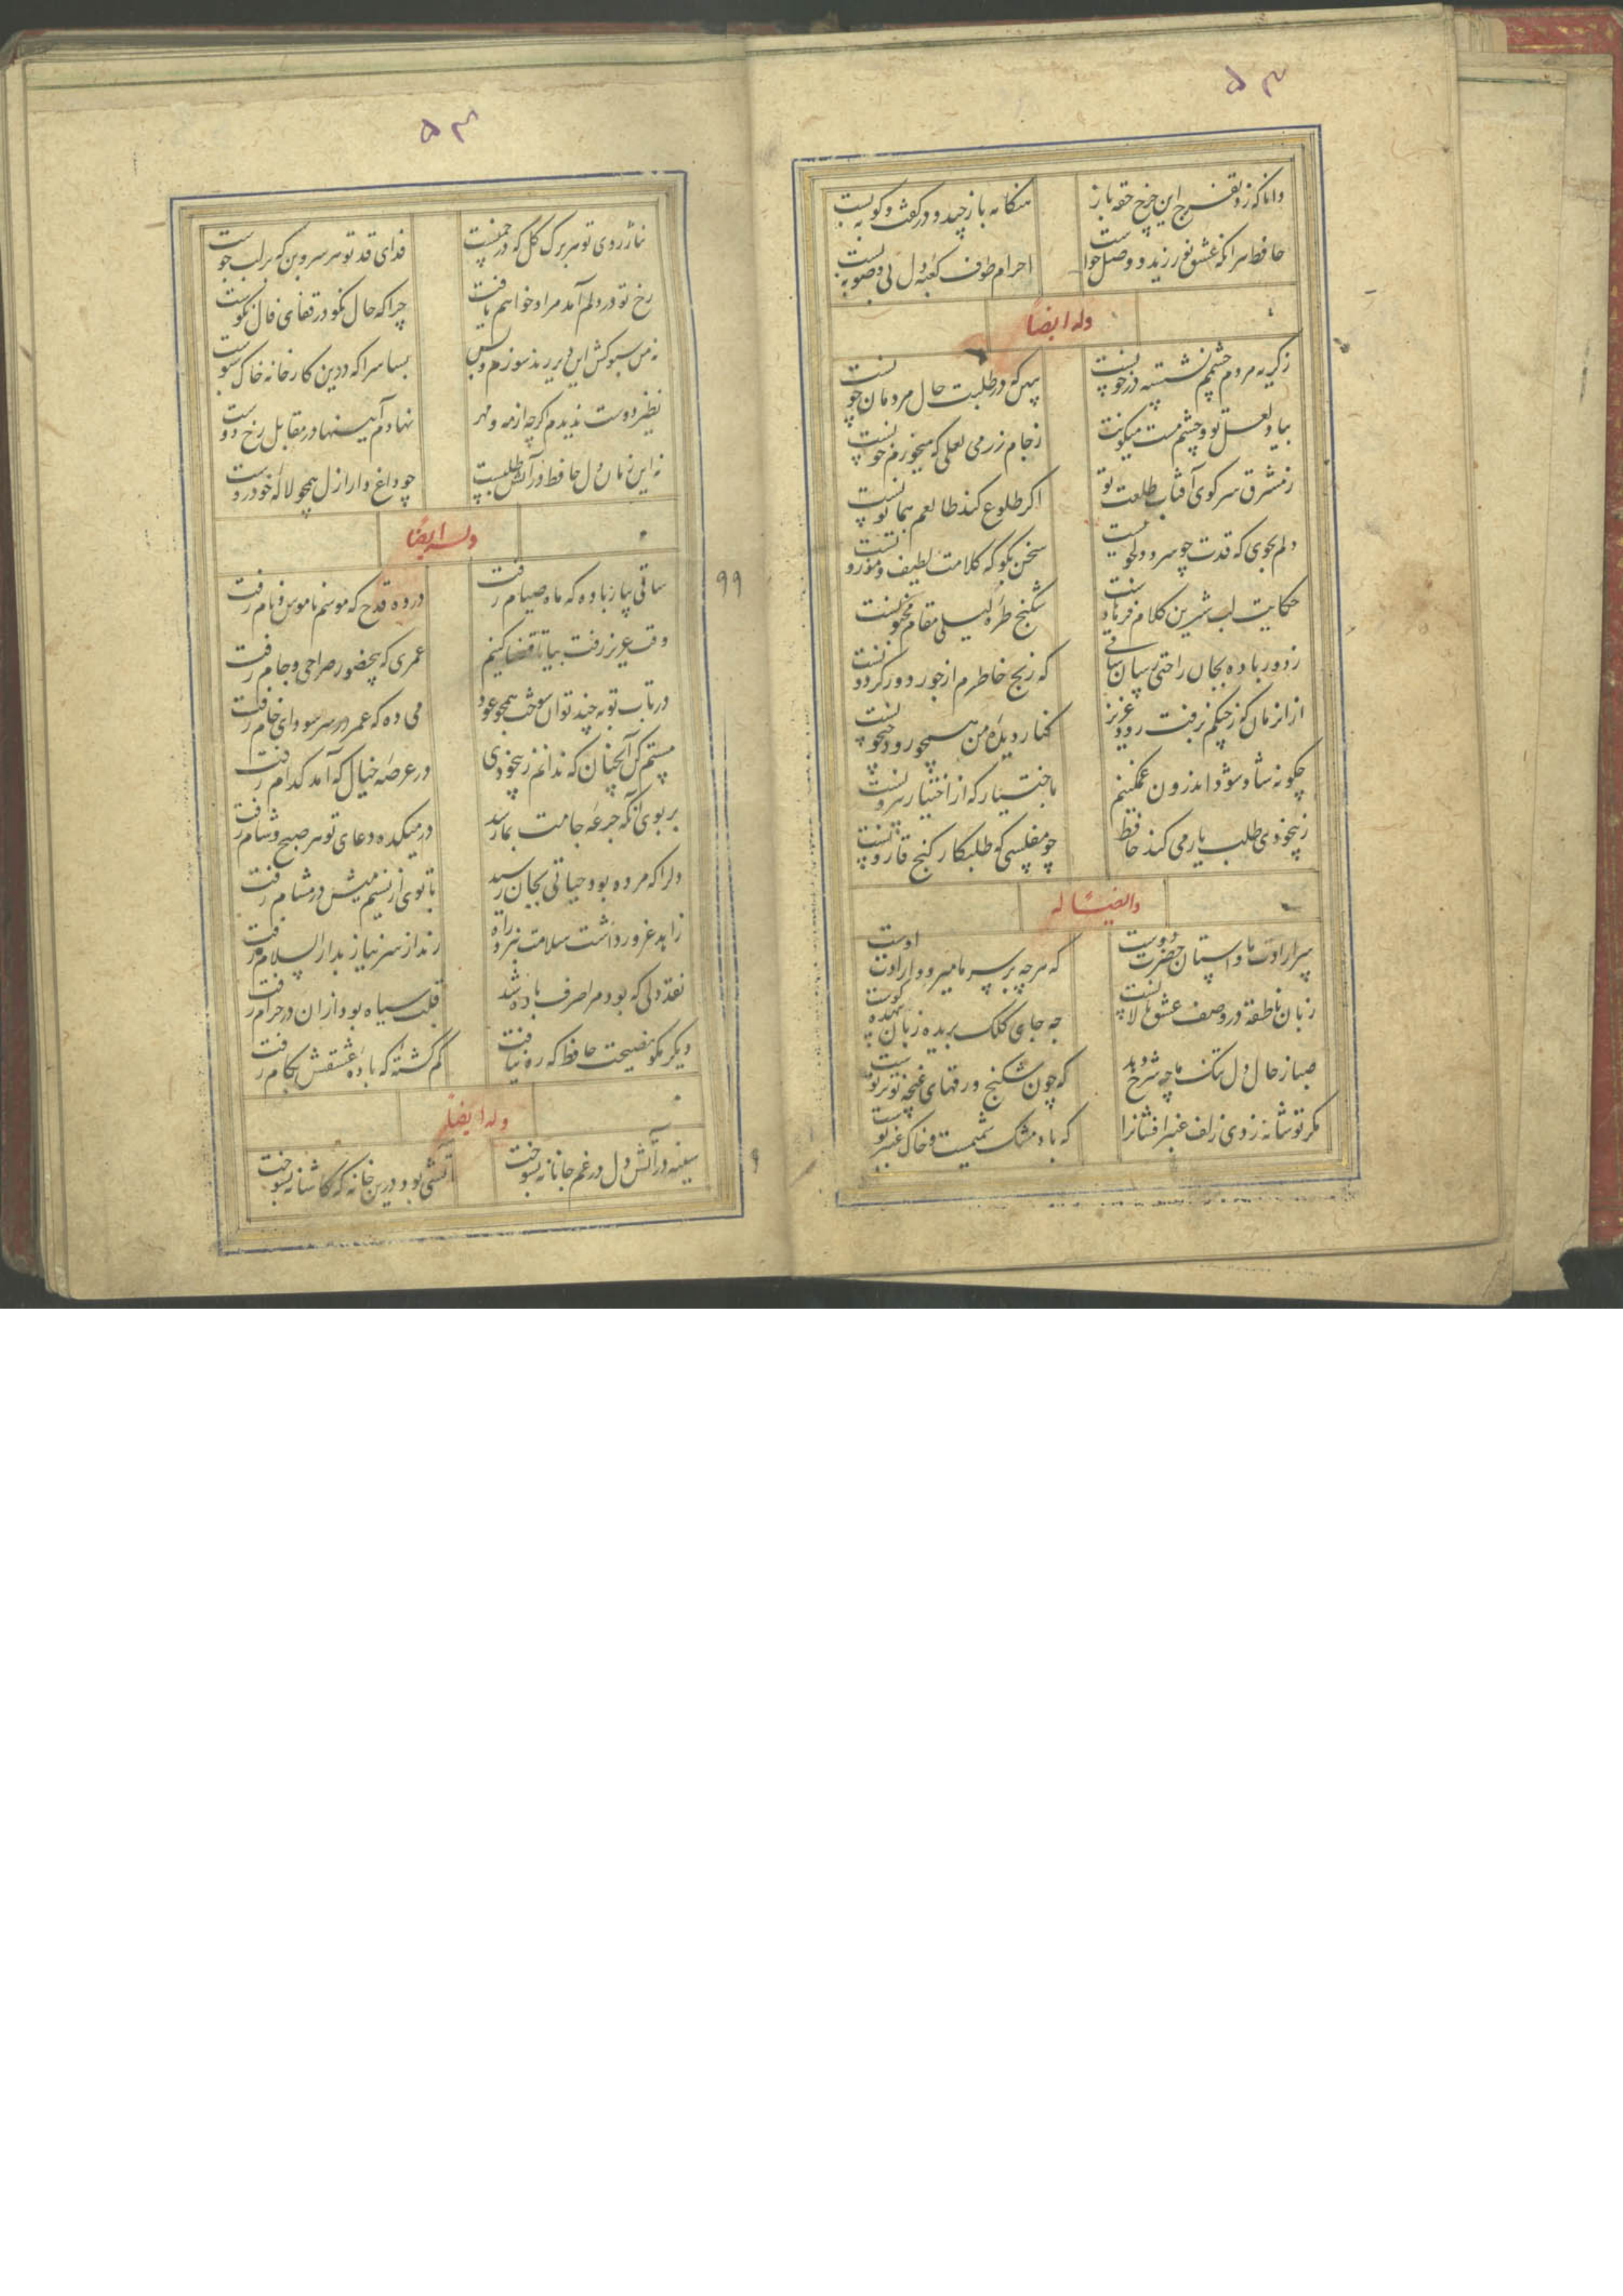 ۵۳
دانا که زد تفرج این چرخ حقه باز
هنگامه باز چید و در گفت و گو ببست
حافظ هر آنکه عشق نورزید و وصل خواست
احرام طوف کعبه دل بی وضو ببست
وله ایضاً
ز گریه مردم چشمم نشسته در خونست
ببین که در طلبت حال مردمان چونست
بیاد لعل تو و چشم مست میگونت
ز جام زر می لعلی که میخورم خونست
ز مشرق سر کوی آفتاب طلعت تو
اگر طلوع کند طالعم همایونست
دلم بجوی که قدت چو سرو دلجویست
سخن بگو که کلامت لطیف و موزونست
حکایت لب شیرین کلام فرهادست
شکنج طره لیلی مقام مجنونست
ز دور باده بجان راحتی رسان ساقی
که رنج خاطرم از جور دور گردونست
از انزمان که ز چنگم برفت رود عزیز
کنار دیده من همچو رود جیحونست
چگونه شاد شود اندرون غمگینم
باختیار که از اختیار بیرونست
ز بیخودی طلب یار می کند حافظ
چو مفلسی که طلبکار گنج قارونست
وایضاً له
سر ارادت ما و آستان حضرت دوست
که هر چه بر سر ما میرود ارادت اوست
زبان ناطقه در وصف عشق ما لالست
چه جای کلک بریده زبان بیهده گوست
صبا ز حال دل تنگ ما چه شرح دهد
که چون شکنج ورقهای غنچه تو بر توست
مگر تو شانه زدی زلف عنبر افشانرا
که باد مشک شمیمست و خاک عنبر بوست
۵۳
نثار روی تو هر برگ گل که در چمنست
فدای قد تو هر سروبن که بر لب جوست
رخ تو در دلم آمد مراد خواهم یافت
چرا که حال نکو در قفای فال نکوست
نه من سبوکش این دیر رند سوزم و بس
بسا سرا که درین کارخانه خاک سبوست
نظیر دوست ندیدم اگر چه از مه و مهر
نهادم آینها در مقابل رخ دوست
نه این زمان دل حافظ در آتش طلبست
چو داغدار ازل همچو لاله خودروست
وله ایضاً
ساقی بیار باده که ماه صیام رفت
در ده قدح که موسم ناموس و نام رفت
وقت عزیز رفت بیا تا قضا کنیم
عمری که بیحضور صراحی و جام رفت
در تاب توبه چند توان سوخت همچو عود
می ده که عمر در سر سودای خام رفت
مستم کن آنچنان که ندانم ز بیخودی
در عرصه خیال که آمد کدام رفت
بر بوی آنکه جرعه جامت بما رسد
در میکده دعای تو هر صبح و شام رفت
دلرا که مرده بود حیاتی بجان رسید
تا بوی از نسیم میش در مشام رفت
زاهد غرور داشت سلامت نبرد راه
رند از سر نیاز بدار السلام رفت
نقد دلی که بود مرا صرف باده شد
قلب سیاه بود از ان در حرام رفت
دیگر مگو نصیحت حافظ که ره نیافت
گم گشته که باده عشقش بکام رفت
وله ایضاً
سینه در آتش دل در غم جانانه بسوخت
آتشی بود درین خانه که کاشانه بسوخت
۹۹
۹